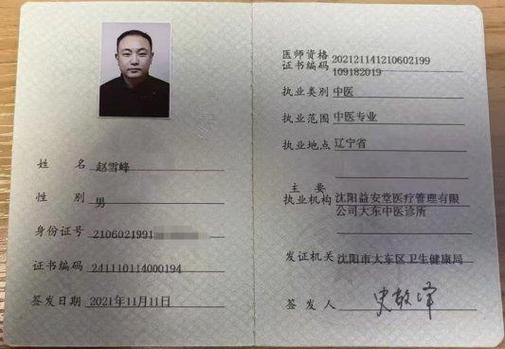 姓 名 赵雪峰
性 别 男
身份证号 2106021991
证书编码 241110114000194
签发日期 2021年11月11日
医师资格
证书编码 202121141210602199
109182019
执业类别 中医
执业范围 中医专业
执业地点 辽宁省
主 要
执业机构 沈阳益安堂医疗管理有限
公司大东中医诊所
发证机关 沈阳市大东区卫生健康局
签 发 人